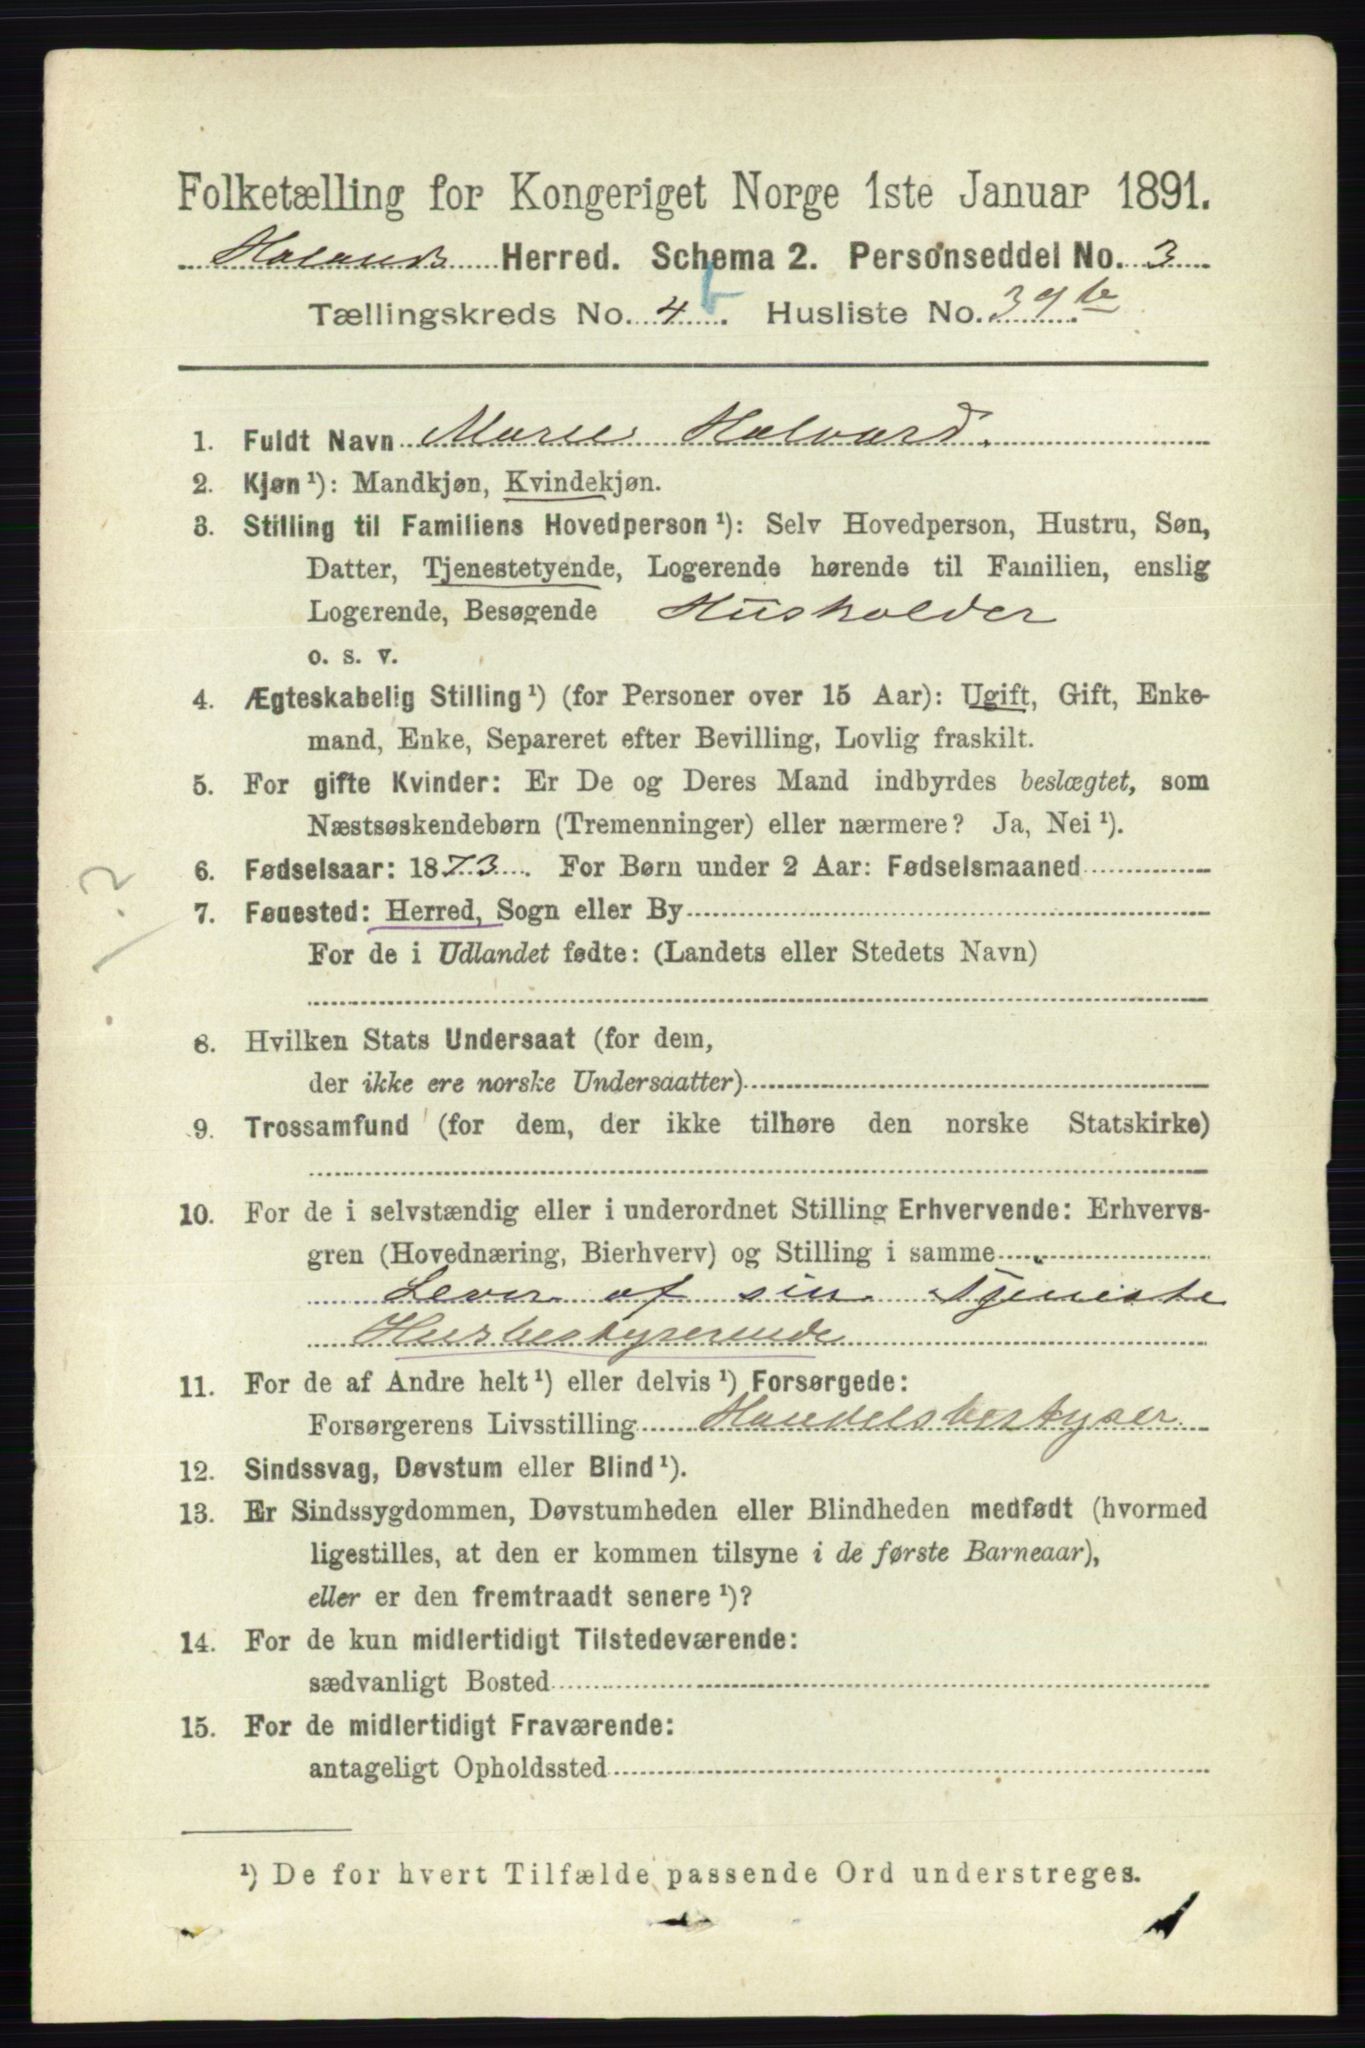 Folketælling for Kongeriget Norge 1ste Januar 1891.
Holands Herred. Schema 2. Personseddel No. 3
Tællingskreds No. 4 b. Husliste No. 39 b
1. Fuldt Navn Marie Halvard.
2. Kjøn ¹): Mandkjøn, Kvindekjøn.
3. Stilling til Familiens Hovedperson ¹): Selv Hovedperson, Hustru, Søn,
Datter, Tjenestetyende, Logerende hørende til Familien, enslig
Logerende, Besøgende Husholder
o. s. v.
4. Ægteskabelig Stilling ¹) (for Personer over 15 Aar): Ugift, Gift, Enke-
mand, Enke, Separeret efter Bevilling, Lovlig fraskilt.
5. For gifte Kvinder: Er De og Deres Mand indbyrdes beslægtet, som
Næstsøskendebørn (Tremenninger) eller nærmere? Ja, Nei ¹).
6. Fødselsaar: 1873. For Børn under 2 Aar: Fødselsmaaned
7. Føuested: Herred, Sogn eller By
For de i Udlandet fødte: (Landets eller Stedets Navn)
8. Hvilken Stats Undersaat (for dem,
der ikke ere norske Undersaatter)
9. Trossamfund (for dem, der ikke tilhøre den norske Statskirke)
10. For de i selvstændig eller i underordnet Stilling Erhvervende: Erhvervs-
gren (Hovednæring, Bierhverv) og Stilling i samme
Lever af sin Tjeneste
Husbestyrerende
11. For de af Andre helt ¹) eller delvis ¹) Forsørgede:
Forsørgerens Livsstilling Handelsbestyrer.
12. Sindssvag, Døvstum eller Blind ¹).
13. Er Sindssygdommen, Døvstumheden eller Blindheden medfødt (hvormed
ligestilles, at den er kommen tilsyne i de første Barneaar),
eller er den fremtraadt senere ¹)?
14. For de kun midlertidigt Tilstedeværende:
sædvanligt Bosted
15. For de midlertidigt Fraværende:
antageligt Opholdssted
¹) De for hvert Tilfælde passende Ord understreges.